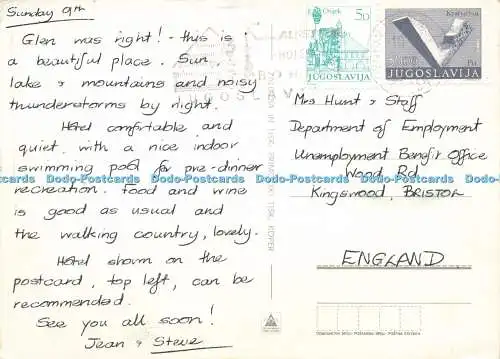 Sunday 9th
Glen was right! this is
a beautiful place. Sun,
lake & mountains and noisy
thunderstorms by night.
Hotel comfortable and
quiet, with a nice indoor
swimming pool for pre-dinner
recreation. Food and wine
is good as usual and
the walking country, lovely.
Hotel shown on the
postcard, top left, can be
recommended.
See you all soon!
Jean & Steve
Osijek
50
JUGOSLAVIJA
JUGOSLAVIJA
Mrs Hunt & Staff
Department of Employment
Unemployment Benefit Office
Wood Rd
Kingswood, BRISTOL
ENGLAND
Dodo-Postcards Dodo-Postcards Dodo-Postcards Dodo-Postcards